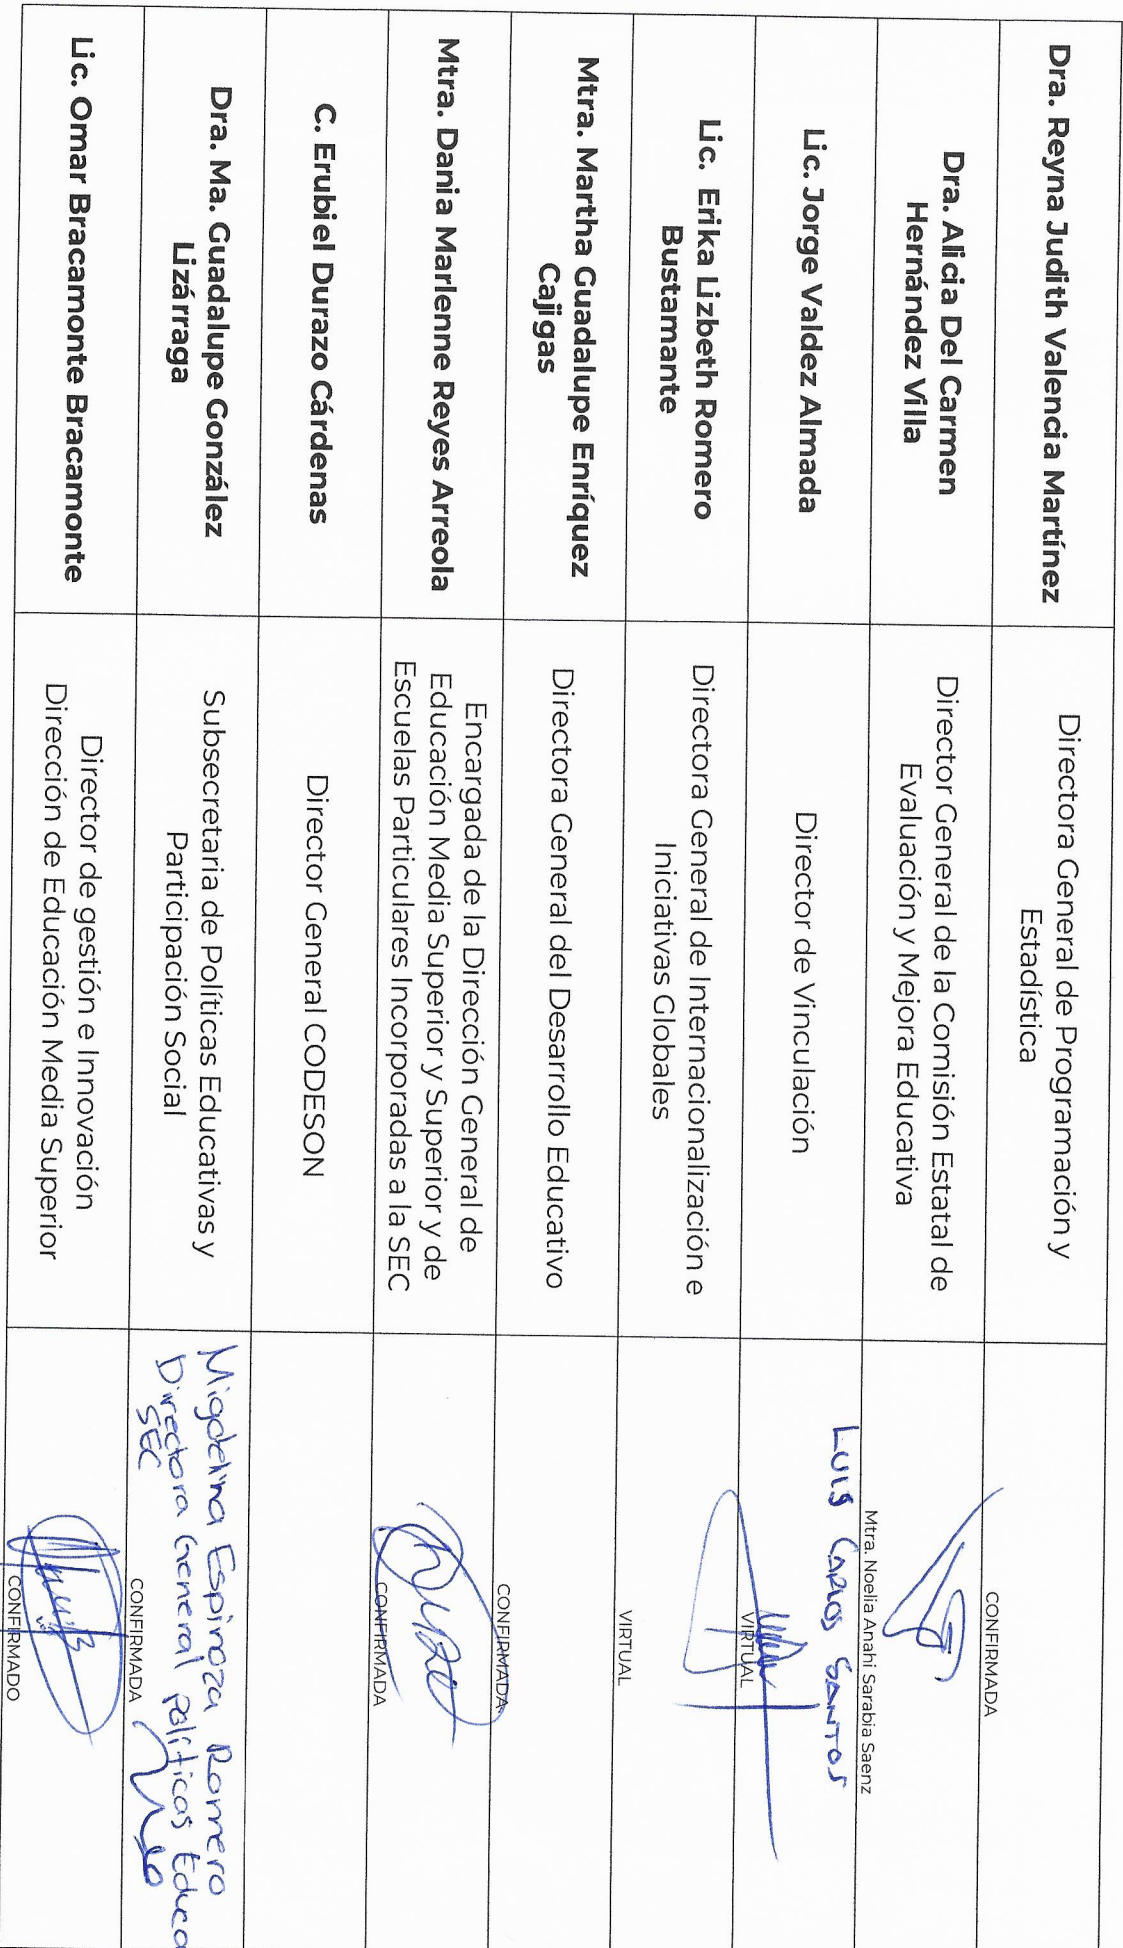 Dra. Reyna Judith Valencia Martínez
Directora General de Programación y
Estadística
CONFIRMADA
Dra. Alicia Del Carmen
Hernández Villa
Director General de la Comisión Estatal de
Evaluación y Mejora Educativa
Mtra. Noelia Anahi Sarabia Saenz
Lic. Jorge Valdez Almada
Director de Vinculación
LUIS CARLOS SANTOS
VIRTUAL
Lic. Erika Lizbeth Romero
Bustamante
Directora General de Internacionalización e
Iniciativas Globales
VIRTUAL
Mtra. Martha Guadalupe Enríquez
Cajigas
Directora General del Desarrollo Educativo
CONFIRMADA
Mtra. Dania Marlenne Reyes Arreola
Encargada de la Dirección General de
Educación Media Superior y Superior y de
Escuelas Particulares Incorporadas a la SEC
CONFIRMADA
C. Erubiel Durazo Cárdenas
Director General CODESON
Dra. Ma. Guadalupe González
Lizárraga
Subsecretaria de Políticas Educativas y
Participación Social
Migdelina Espinoza Romero
Directora General políticas Educa
SEC
CONFIRMADA
Lic. Omar Bracamonte Bracamonte
Director de gestión e Innovación
Dirección de Educación Media Superior
CONFIRMADO